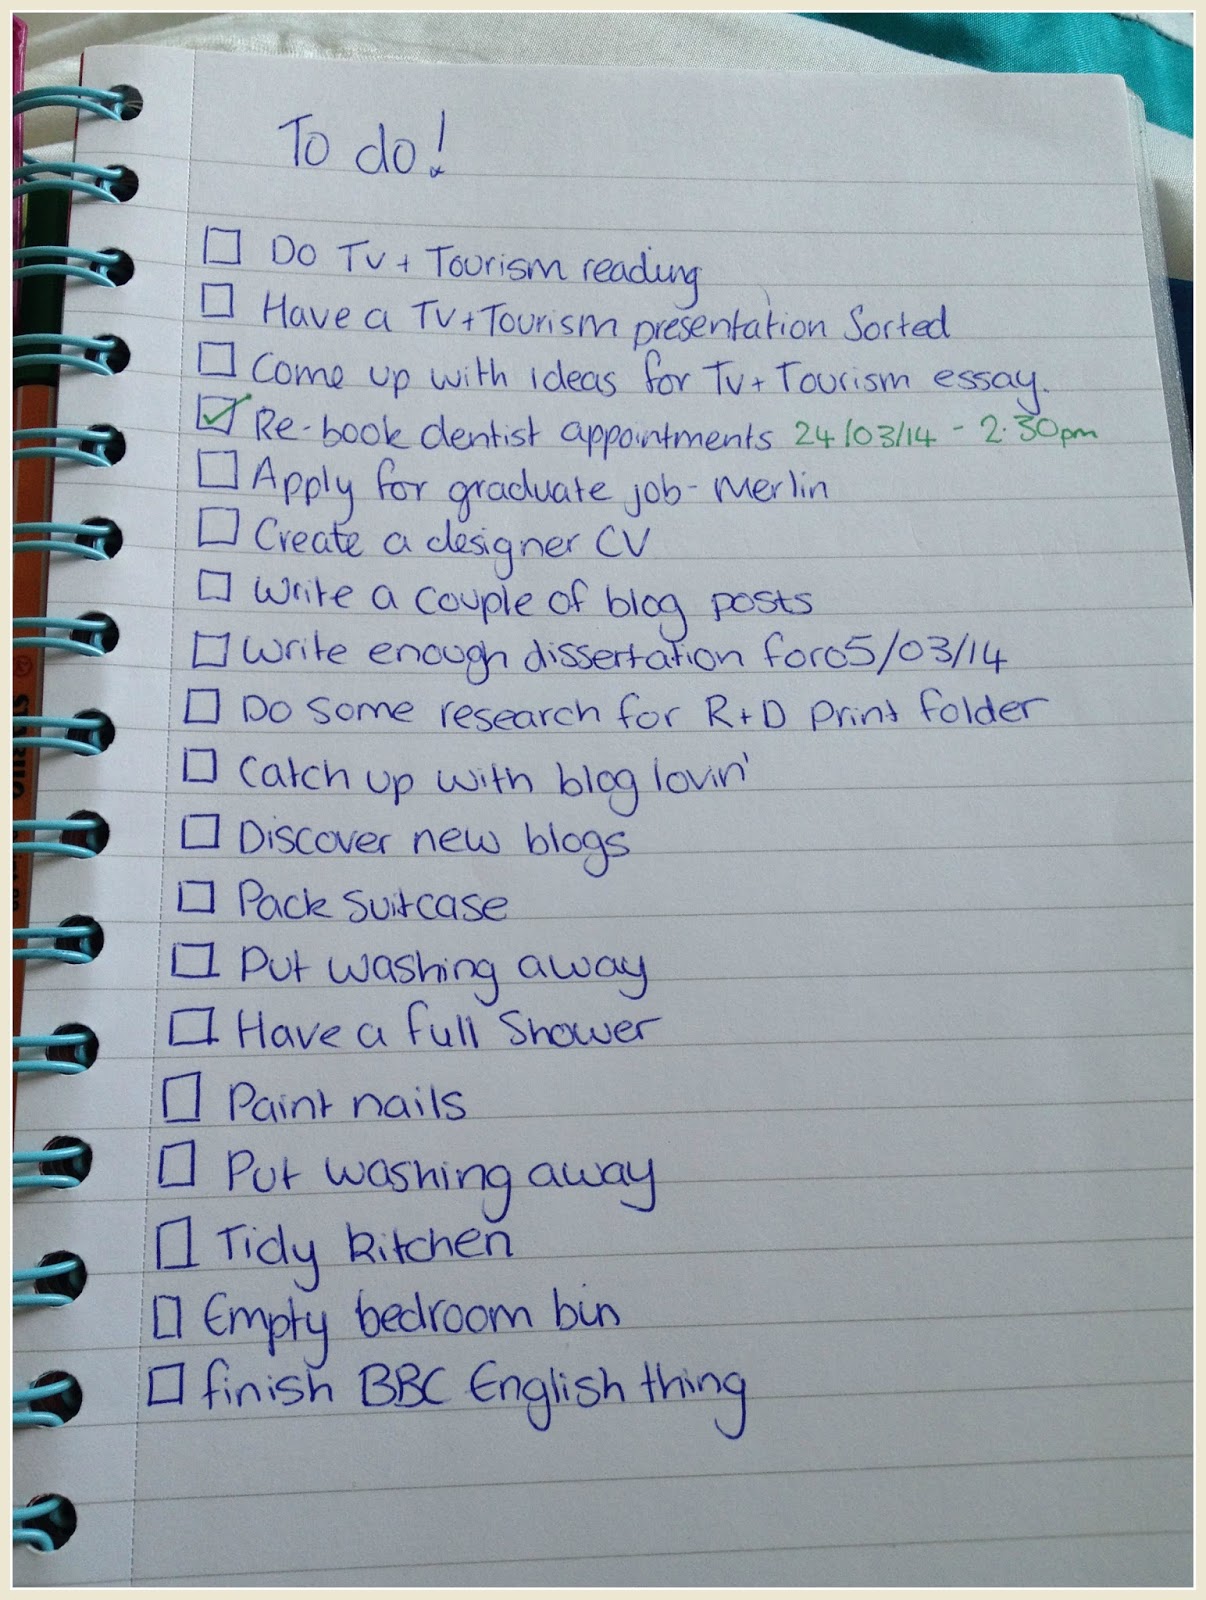 To do!
☐ Do Tv + Tourism reading
☐ Have a Tv + Tourism presentation Sorted
☐ Come up with ideas for Tv + Tourism essay.
☑ Re-book dentist appointments 24/03/14 - 2.30pm
☐ Apply for graduate job - Merlin
☐ Create a designer CV
☐ Write a couple of blog posts
☐ Write enough dissertation for 05/03/14
☐ Do some research for R+D print folder
☐ Catch up with blog lovin'
☐ Discover new blogs
☐ Pack suitcase
☐ Put washing away
☐ Have a full Shower
☐ Paint nails
☐ Put washing away
☐ Tidy kitchen
☐ Empty bedroom bin
☐ finish BBC English thing